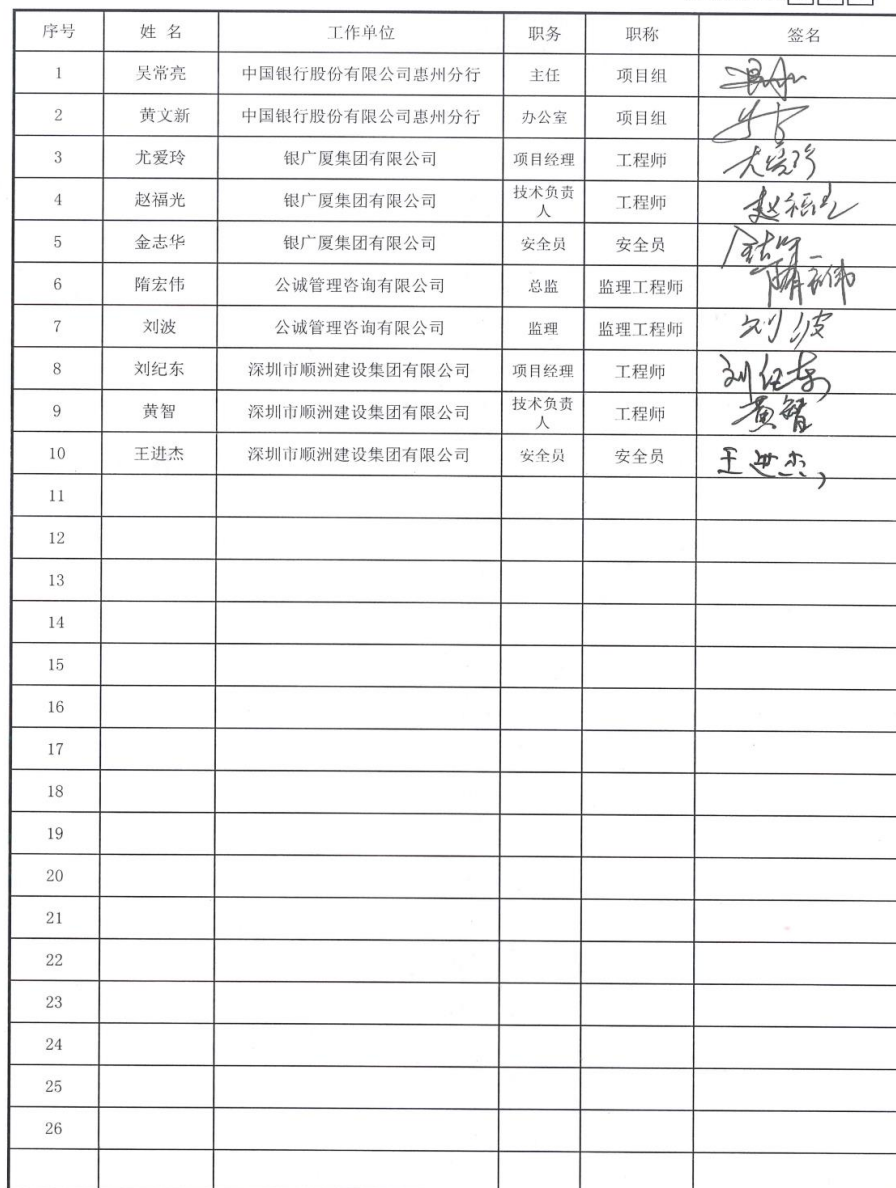 序号 姓 名 工作单位 职务 职称 签名
1 吴常亮 中国银行股份有限公司惠州分行 主任 项目组
2 黄文新 中国银行股份有限公司惠州分行 办公室 项目组
3 尤爱玲 银广厦集团有限公司 项目经理 工程师
4 赵福光 银广厦集团有限公司 技术负责人 工程师 赵福光
5 金志华 银广厦集团有限公司 安全员 安全员
6 隋宏伟 公诚管理咨询有限公司 总监 监理工程师 隋宏伟
7 刘波 公诚管理咨询有限公司 监理 监理工程师 刘波
8 刘纪东 深圳市顺洲建设集团有限公司 项目经理 工程师 刘纪东
9 黄智 深圳市顺洲建设集团有限公司 技术负责人 工程师 黄智
10 王进杰 深圳市顺洲建设集团有限公司 安全员 安全员 王进杰
11
12
13
14
15
16
17
18
19
20
21
22
23
24
25
26